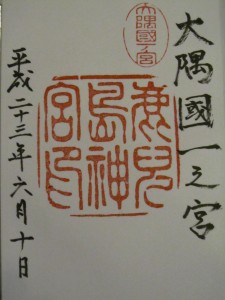 大隅國一之宮
大隅國一之宮
鹿兒
島神
宮印
平成二十三年六月十日